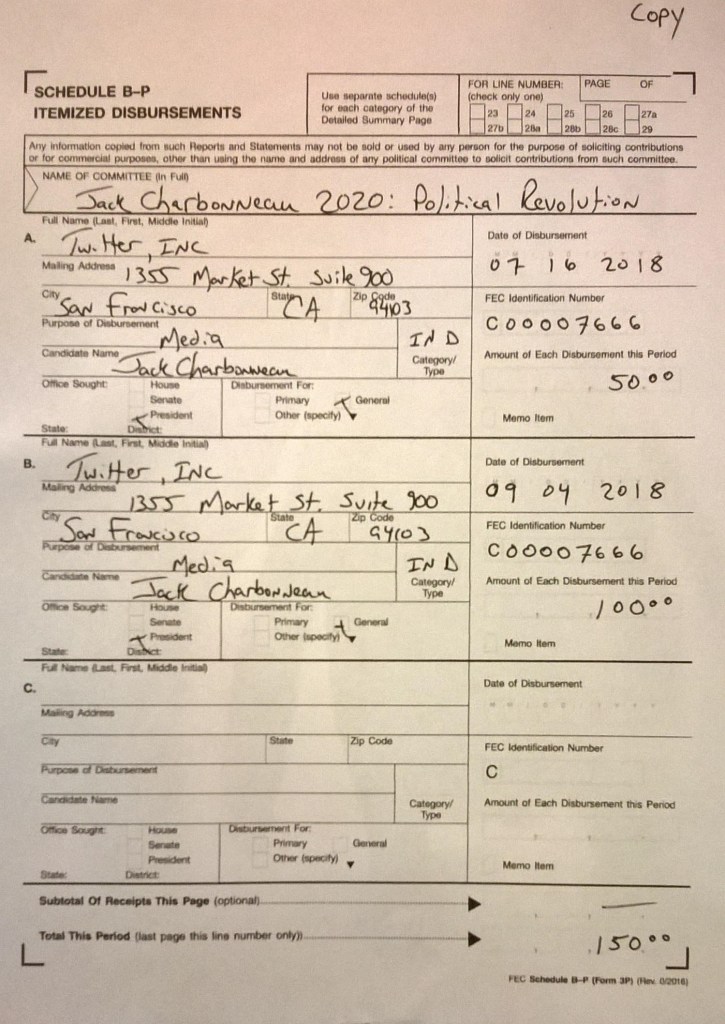 Copy
SCHEDULE B-P
ITEMIZED DISBURSEMENTS
Use separate schedule(s)
for each category of the
Detailed Summary Page
FOR LINE NUMBER: PAGE OF
(check only one)
23 24 25 26 27a
27b 28a 28b 28c 29
Any information copied from such Reports and Statements may not be sold or used by any person for the purpose of soliciting contributions
or for commercial purposes, other than using the name and address of any political committee to solicit contributions from such committee.
NAME OF COMMITTEE (In Full)
Jack Charbonneau 2020: Political Revolution
Full Name (Last, First, Middle Initial)
A. Twitter, INC
Mailing Address 1355 Market St. Suite 900
City San Francisco State CA Zip Code 94103
Purpose of Disbursement
Media
Candidate Name Jack Charbonneau
IND
Category/
Type
Office Sought: House
Senate
President
State: District:
Disbursement For:
Primary General
Other (specify)
Date of Disbursement
07 16 2018
FEC Identification Number
C00007666
Amount of Each Disbursement this Period
50.00
Memo Item
Full Name (Last, First, Middle Initial)
B. Twitter, INC
Mailing Address
1355 Market St. Suite 900
City San Francisco State CA Zip Code 94103
Purpose of Disbursement
Media
Candidate Name Jack Charbonneau
IND
Category/
Type
Office Sought: House
Senate
President
State: District:
Disbursement For:
Primary General
Other (specify)
Date of Disbursement
09 04 2018
FEC Identification Number
C00007666
Amount of Each Disbursement this Period
100.00
Memo Item
Full Name (Last, First, Middle Initial)
C.
Mailing Address
City State Zip Code
Purpose of Disbursement
Candidate Name
Category/
Type
Office Sought: House
Senate
President
State: District:
Disbursement For:
Primary General
Other (specify)
Date of Disbursement
FEC Identification Number
C
Amount of Each Disbursement this Period
Memo Item
Subtotal Of Receipts This Page (optional)
Total This Period (last page this line number only)) 150.00
FEC Schedule B-P (Form 3P) (Rev. 0/2016)